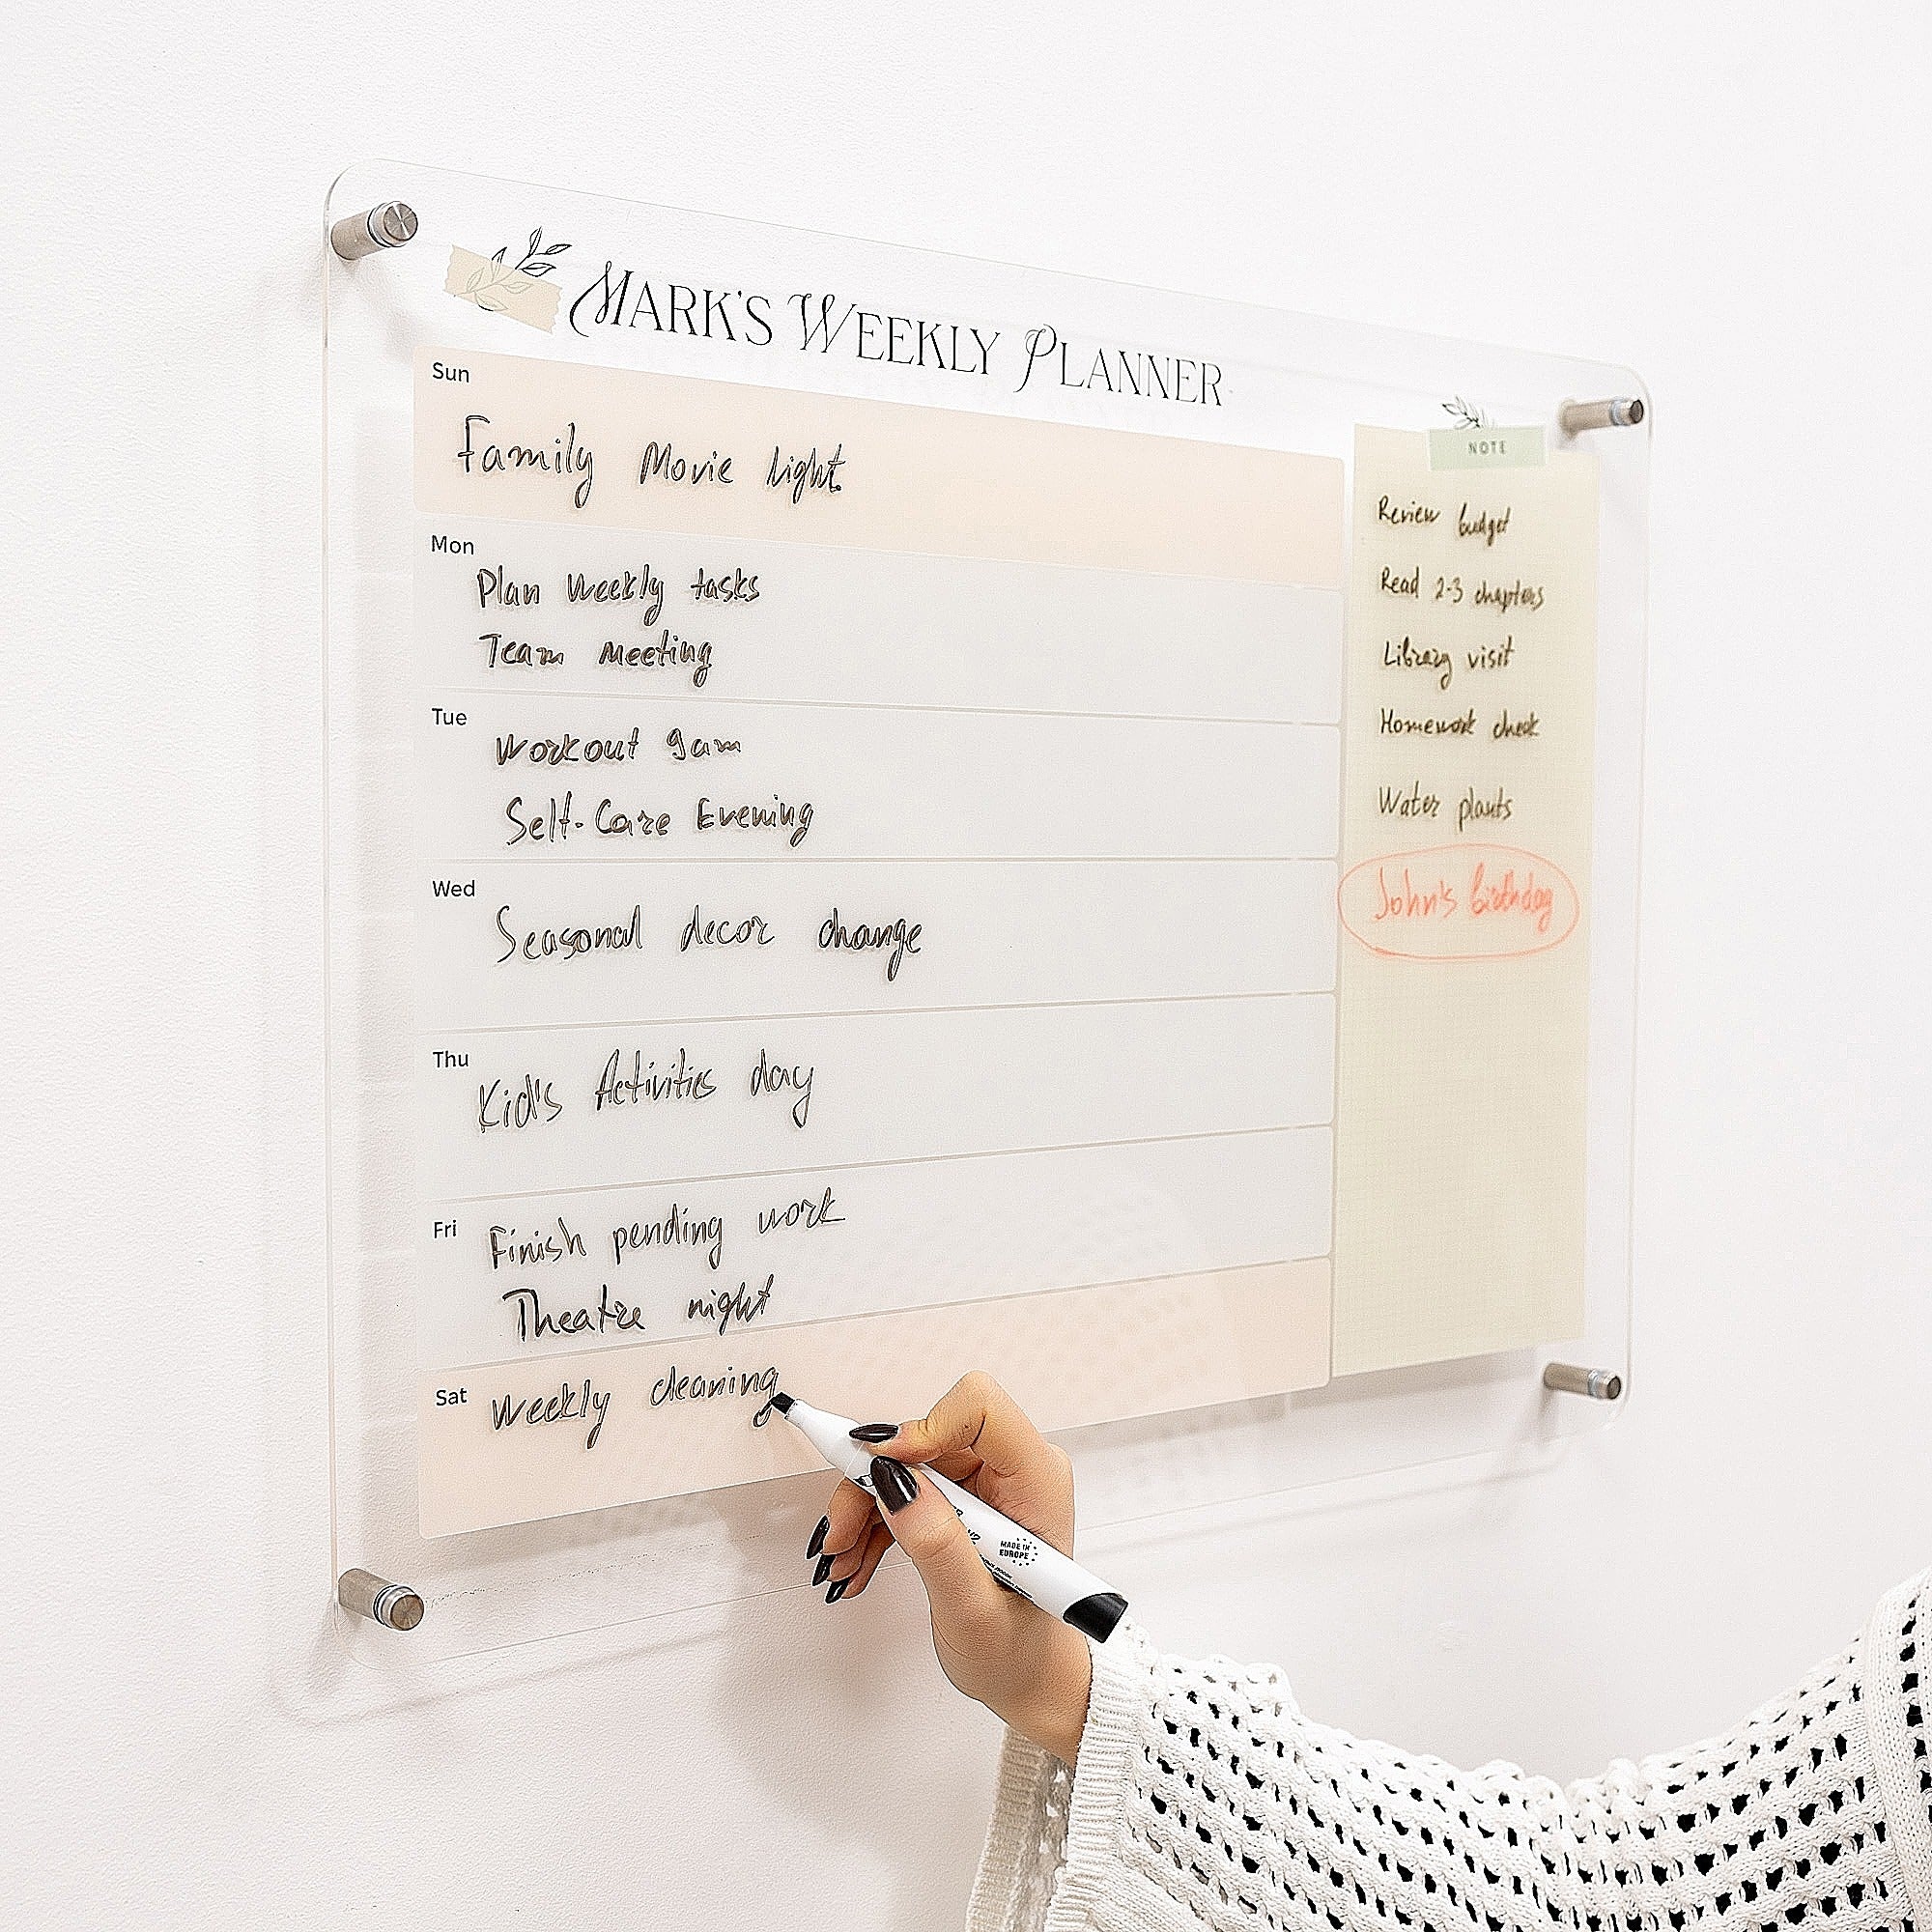 MARK'S WEEKLY PLANNER
Sun
Family Movie Night
Mon
Plan Weekly tasks
Team Meeting
Tue
Workout 9am
Self-Care Evening
Wed
Seasonal decor change
Thu
Kid's Activities day
Fri
Finish pending work
Theatre night
Sat
Weekly cleaning
NOTE
Review budget
Read 2-3 chapters
Library visit
Homework check
Water plants
John's birthday
MADE IN
EUROPE